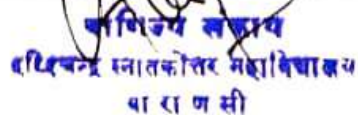 वाणिज्य संकाय
हरिश्चन्द्र स्नातकोत्तर महाविद्यालय
वा रा ण सी